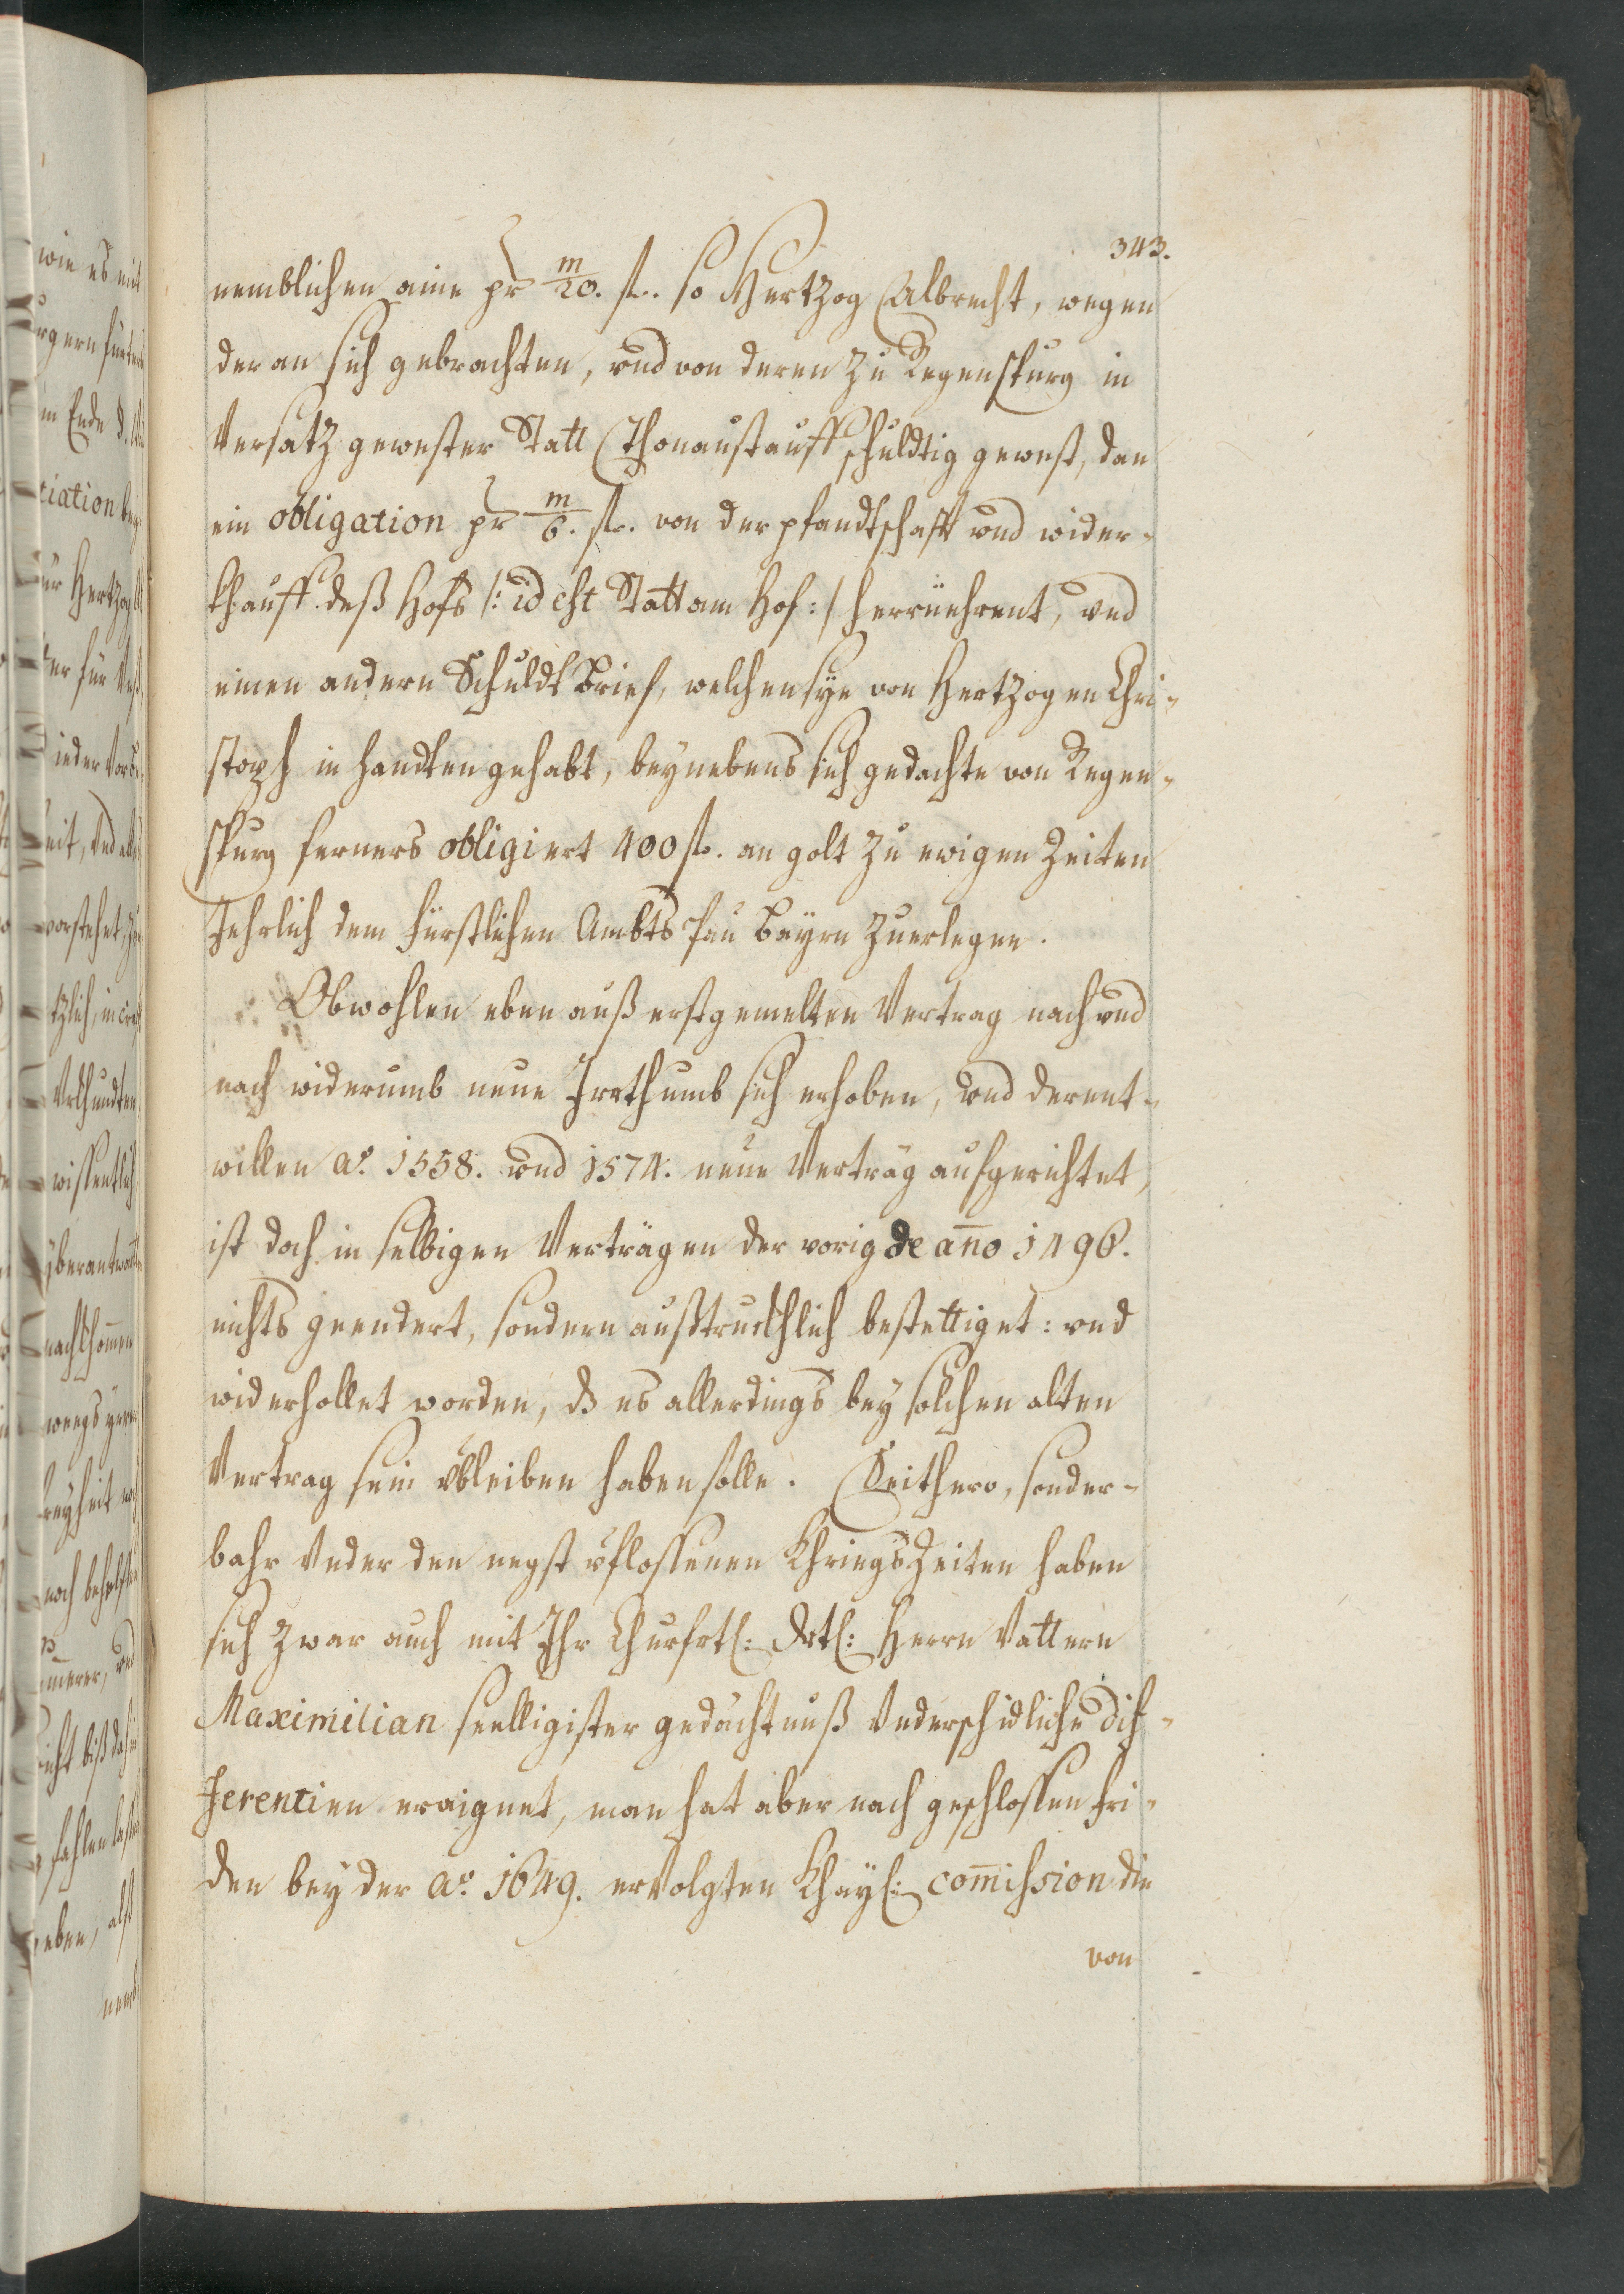 343.
nemblichen aine pr m/20. fl. so Hertzog Albrecht, wegen
der an sich gebrachten, vnd von denen zu Regenspurg in
Versatz gewester Statt Thonaustauff schuldtig gewest, dan
ein obligation pr m/6. fl. von der pfandtschafft vnd wider-
khauff deß Hofs /: id est Statt am Hof :/ herrüehrent, vnd
einen andern Schuldt Brief, welchen sye von Hertzogen Chri-
stoph in handten gehabt, beynebens sich gedachte von Regen-
spurg ferners obligiert 400 fl. an golt zu ewigen Zeiten
Jehrlich dem fürstlichen Ambts Bayrn zuerlegen.
Obwohlen eben auß erstgemelten Vertrag nach vnd
nach widerumb neue Irrthumb sich erhoben, vnd derent-
willen ao. 1558. vnd 1574. neue Verträg aufgerichtet,
ist doch in selbigen Verträgen der vorig de anno 1496.
nichts geendert, sondern außtruckhlich bestettiget: vnd
widerhollet worden, dz es allerdings bey solchen alten
Vertrag sein vbleiben haben solle. Seithero, sonder-
bahr Vnder den negst vflossenen Khriegs Zeiten haben
sich zwar auch mit Ihr Churfrtl: Drtl: Herrn Vattern
Maximilian seelligister gedächtnuß Vnderschidliche dif-
ferentien eraignet, man hat aber nach geschlossen fri-
den bey der ao. 1649. ervolgten Khayl: commission die
von
wie es mit
tiation
ur Hertzog
wissentlich
nachkhomen
eben, alß
nemb